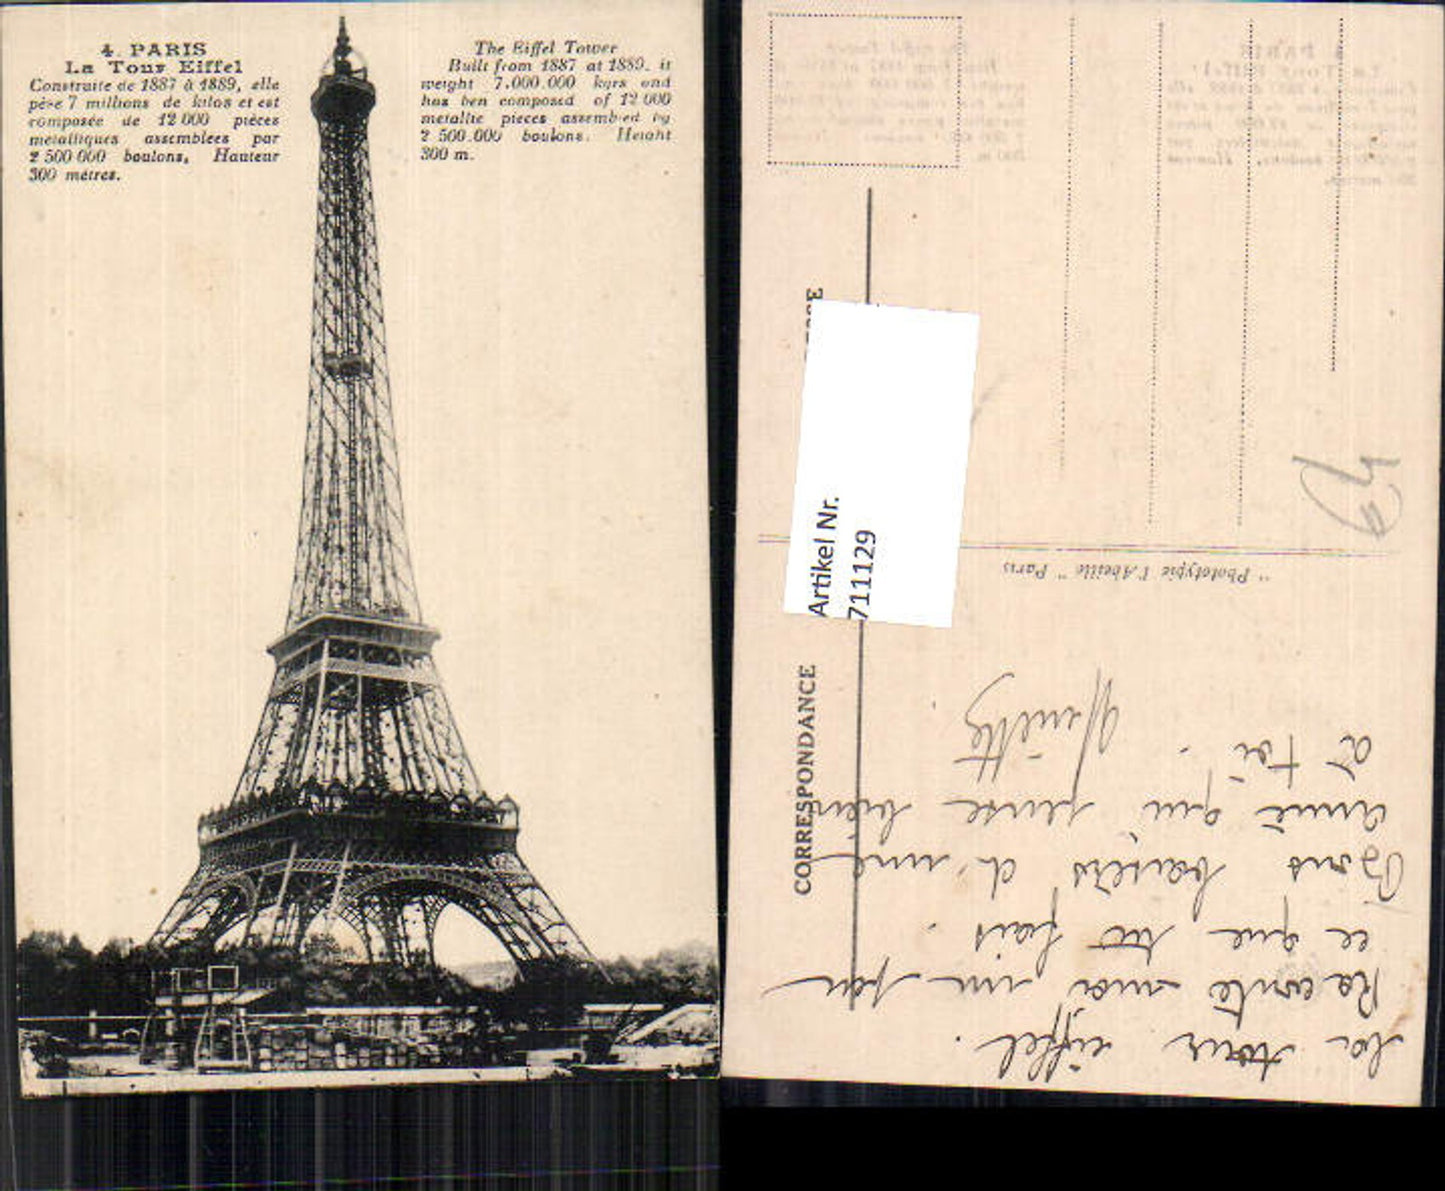 4. PARIS
La Tour Eiffel
Construite de 1887 à 1889, elle
pèse 7 millions de kilos et est
composée de 12 000 pièces
metalliques assemblees par
2 500 000 boulons, Hauteur
300 métres.
The Eiffel Tower
Built from 1887 at 1889. it
weight 7.000.000 kgrs and
has ben composed of 12 000
metallic pieces assembled by
2 500.000 boulons. Height
300 m.
Artikel Nr.
711129
CORRESPONDANCE
" Phototypie l'Abeille " Paris
64
La tour eiffel.
Raconte moi un peu
ce que tu fais.
Bons baisers d'une
amie qui pense bien
à toi.